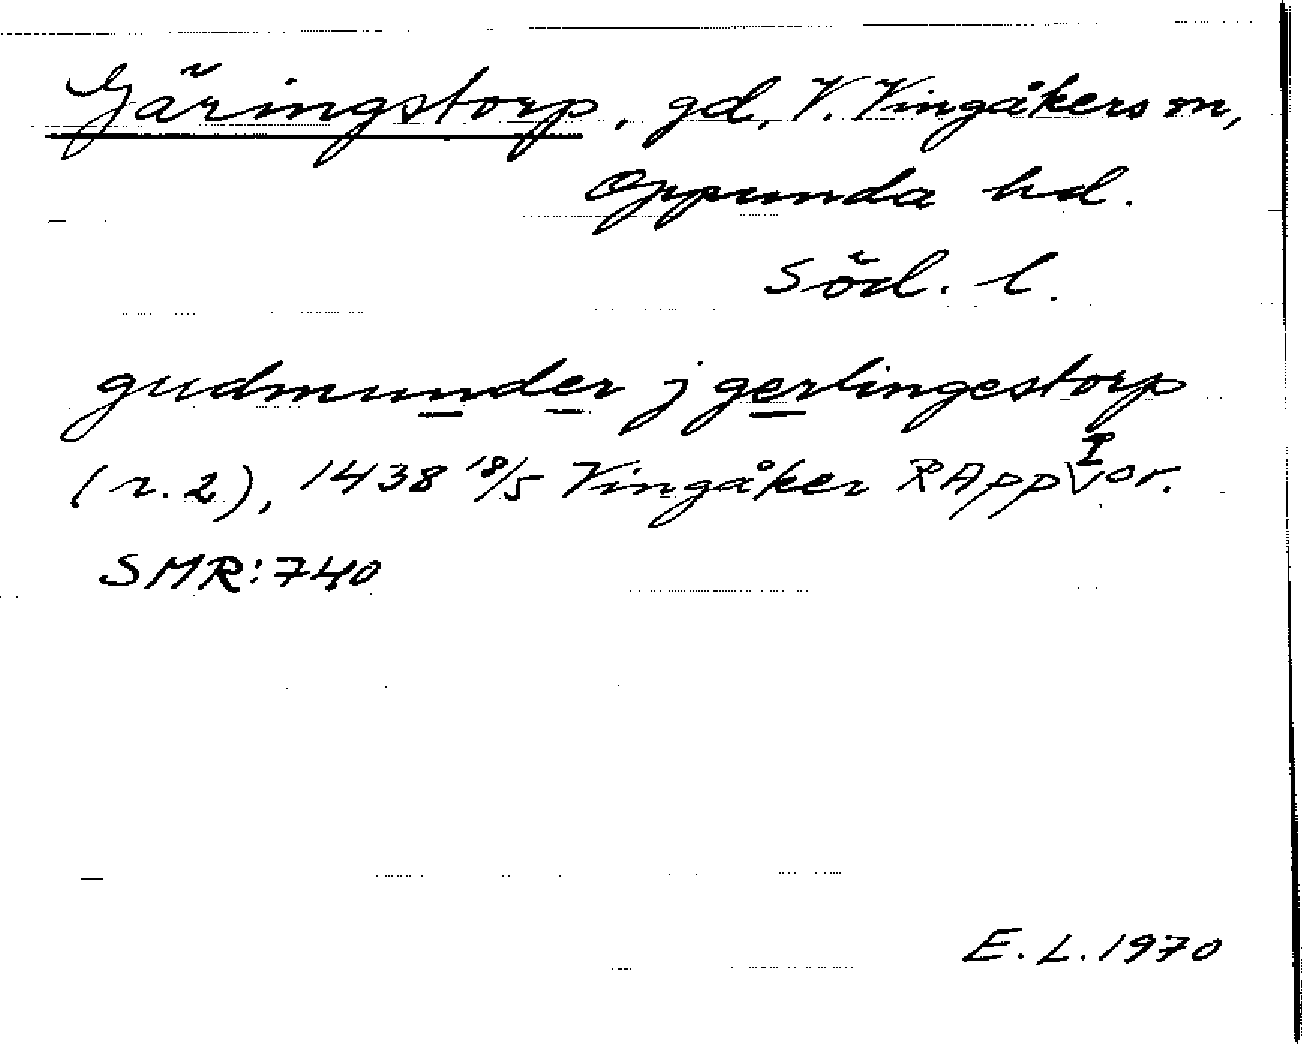 Gäringstorp, gd, V. Vingåkers sn,
Oppunda hd.
Söd. l.
gudmunder j gerlingestorp
(r. 2), 1438 18/5 Vingåker RApp I or.
SMR: 740
E. L. 1970